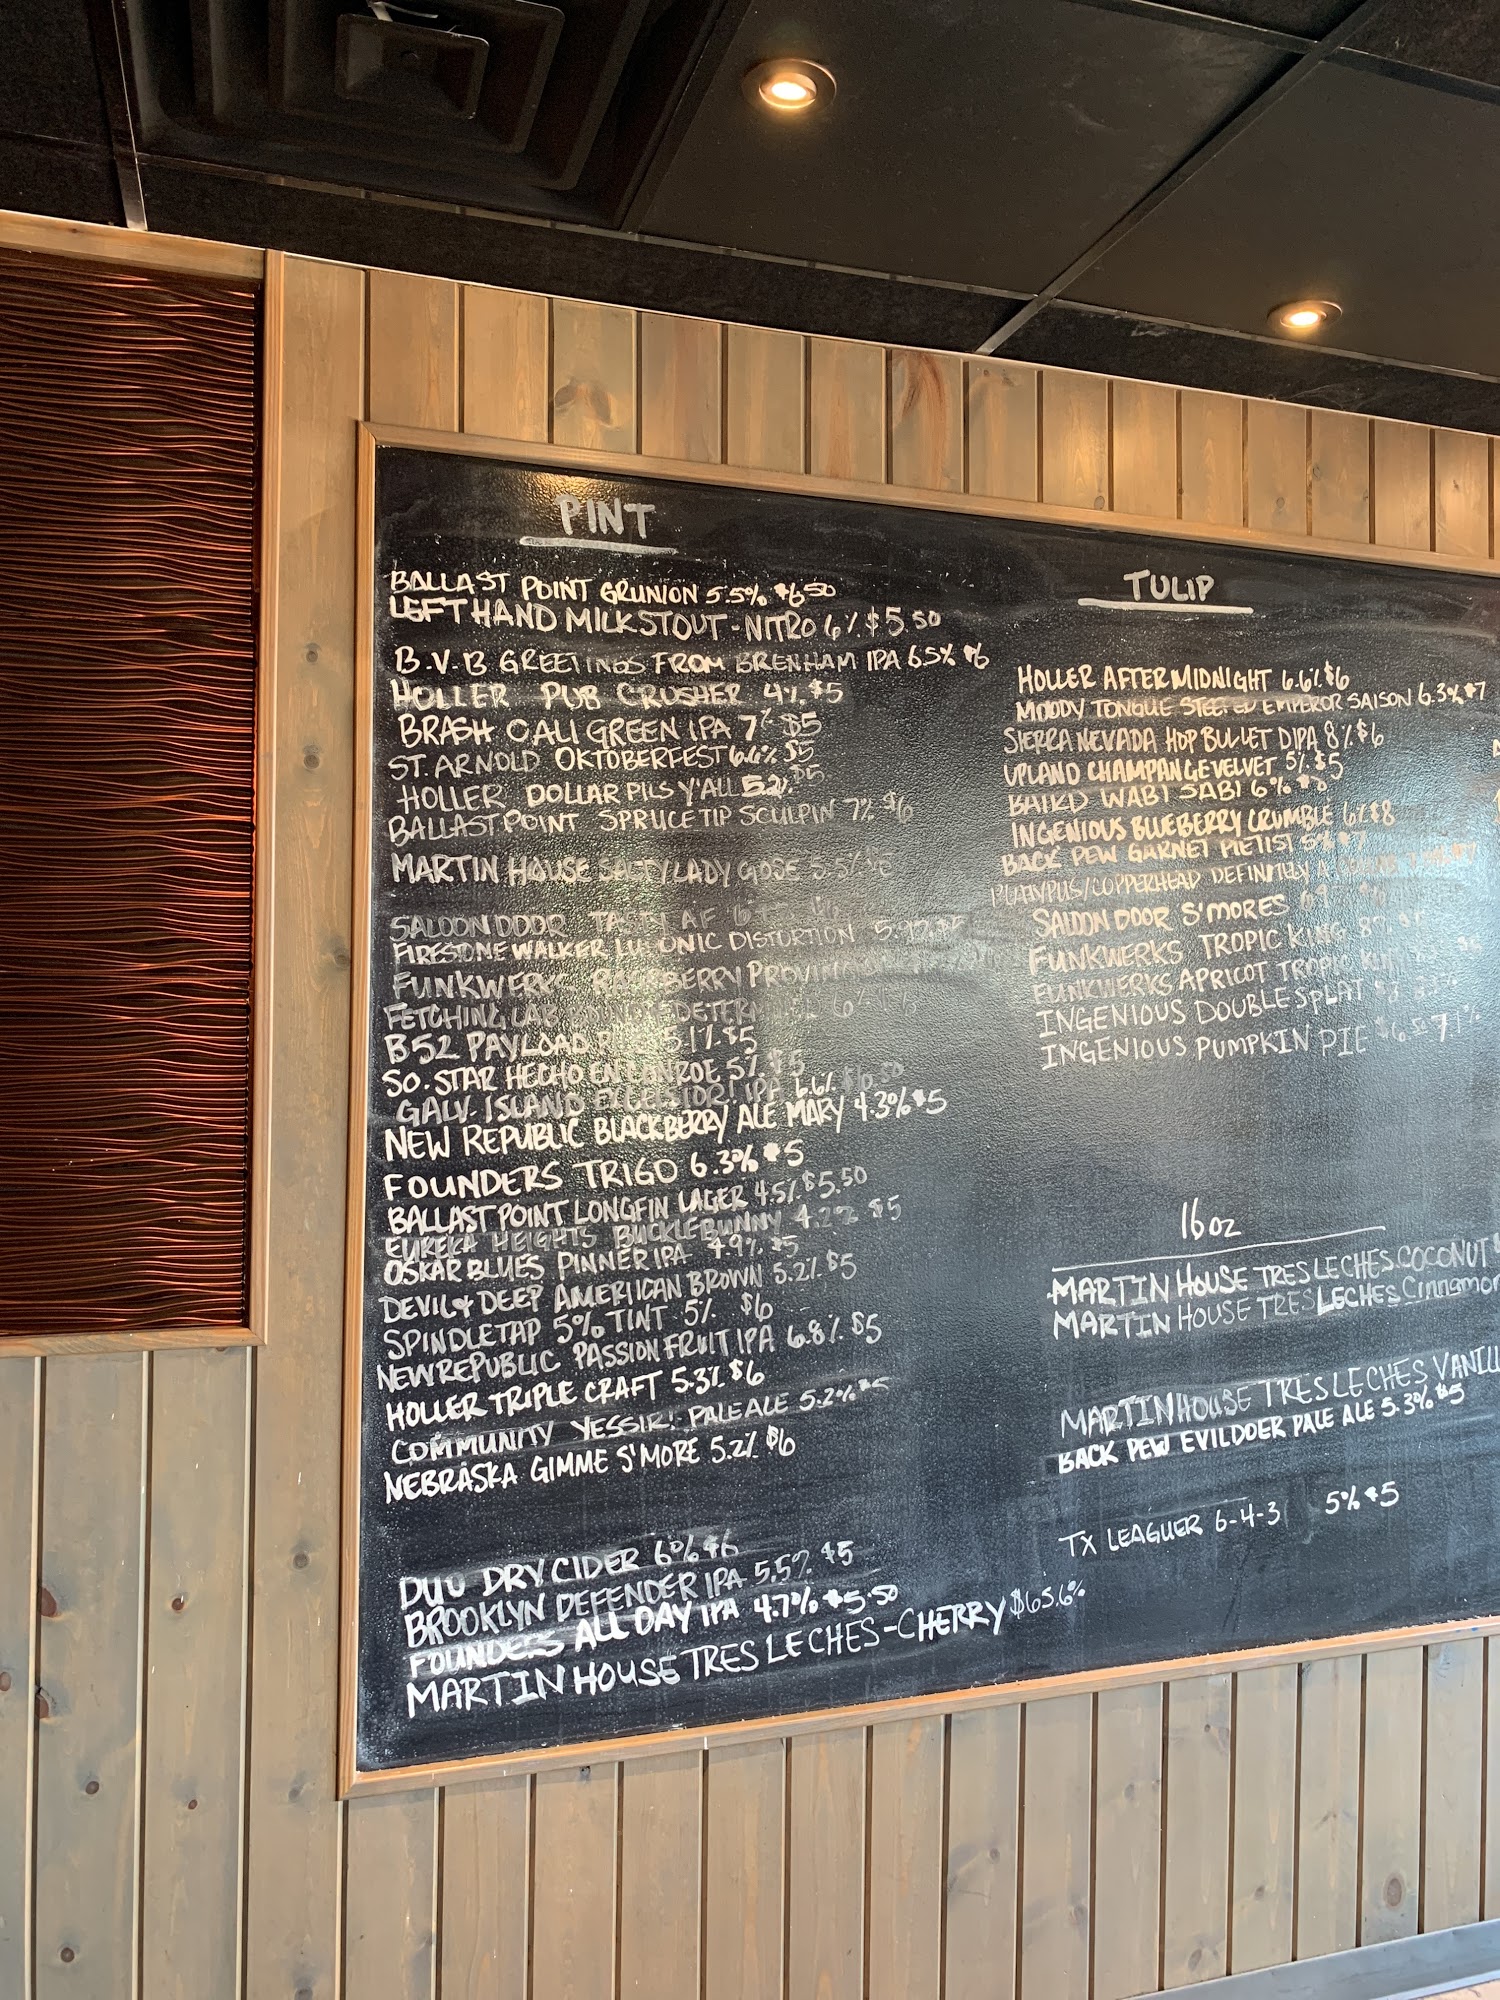 PINT
BALLAST POINT GRUNION 5.5% $6.50
LEFT HAND MILK STOUT - NITRO 6% $5.50
B.V.B GREETINGS FROM BRENHAM IPA 6.5% $6
HOLLER PUB CRUSHER 4% $5
BRASH CALI GREEN IPA 7% $5
ST. ARNOLD OKTOBERFEST 6.6% $5
HOLLER DOLLAR PILS Y'ALL 5.2% $5
BALLAST POINT SPRUCE TIP SCULPIN 7% $6
MARTIN HOUSE SALTY LADY GOSE 5.5% $5
SALOON DOOR TASTY AF
FIRESTONE WALKER LUPONIC DISTORTION 5.9% $5
FUNKWERKS RASPBERRY PROVINCIAL
FETCHING LAB
B52 PAYLOAD 5.1% $5
SO. STAR HECHO EN CONROE 5% $5
GALV. ISLAND EXCELSIOR! IPA 6.6% $6.50
NEW REPUBLIC BLACKBERRY ALE MARY 4.3% $5
FOUNDERS TRIGO 6.3% $5
BALLAST POINT LONGFIN LAGER 4.5% $5.50
EUREKA HEIGHTS BUCKLE BUNNY 4.2% $5
OSKAR BLUES PINNER IPA 4.9% $5
DEVIL & DEEP AMERIICAN BROWN 5.2% $5
SPINDLETAP 5% TINT 5% $6
NEW REPUBLIC PASSION FRUIT IPA 6.8% $5
HOLLER TRIPLE CRAFT 5.3% $6
COMMUNITY YESSIR! PALE ALE 5.2% $5
NEBRASKA GIMME S'MORE 5.2% $6
DUO DRY CIDER 6% $6
BROOKLYN DEFENDER IPA 5.5% $5
FOUNDERS ALL DAY IPA 4.7% $5.50
MARTIN HOUSE TRES LECHES-CHERRY $6 5.6%
TULIP
HOLLER AFTER MIDNIGHT 6.6% $6
MOODY TONGUE STEEPED EMPEROR SAISON 6.3% $7
SIERRA NEVADA HOP BULLET DIPA 8% $6
UPLAND CHAMPANGE VELVET 5% $5
BAIRD WABI SABI 6% $8
INGENIOUS BLUEBERRY CRUMBLE 6% $8
BACK PEW GARNET PIETIST 5% $7
PLATYPUS/COPPERHEAD DEFINITLEY
SALOON DOOR S'MORES
FUNKWERKS TROPIC KING 8%
FUNKWERKS APRICOT TROPIC KING
INGENIOUS DOUBLE SPLAT
INGENIOUS PUMPKIN PIE 7.1%
16 oz
MARTIN HOUSE TRES LECHES COCONUT
MARTIN HOUSE TRES LECHES Cinnamon
MARTIN HOUSE TRES LECHES
BACK PEW EVILDOER PALE ALE 5.3% $5
TX LEAGUER 6-4-3 5% $5